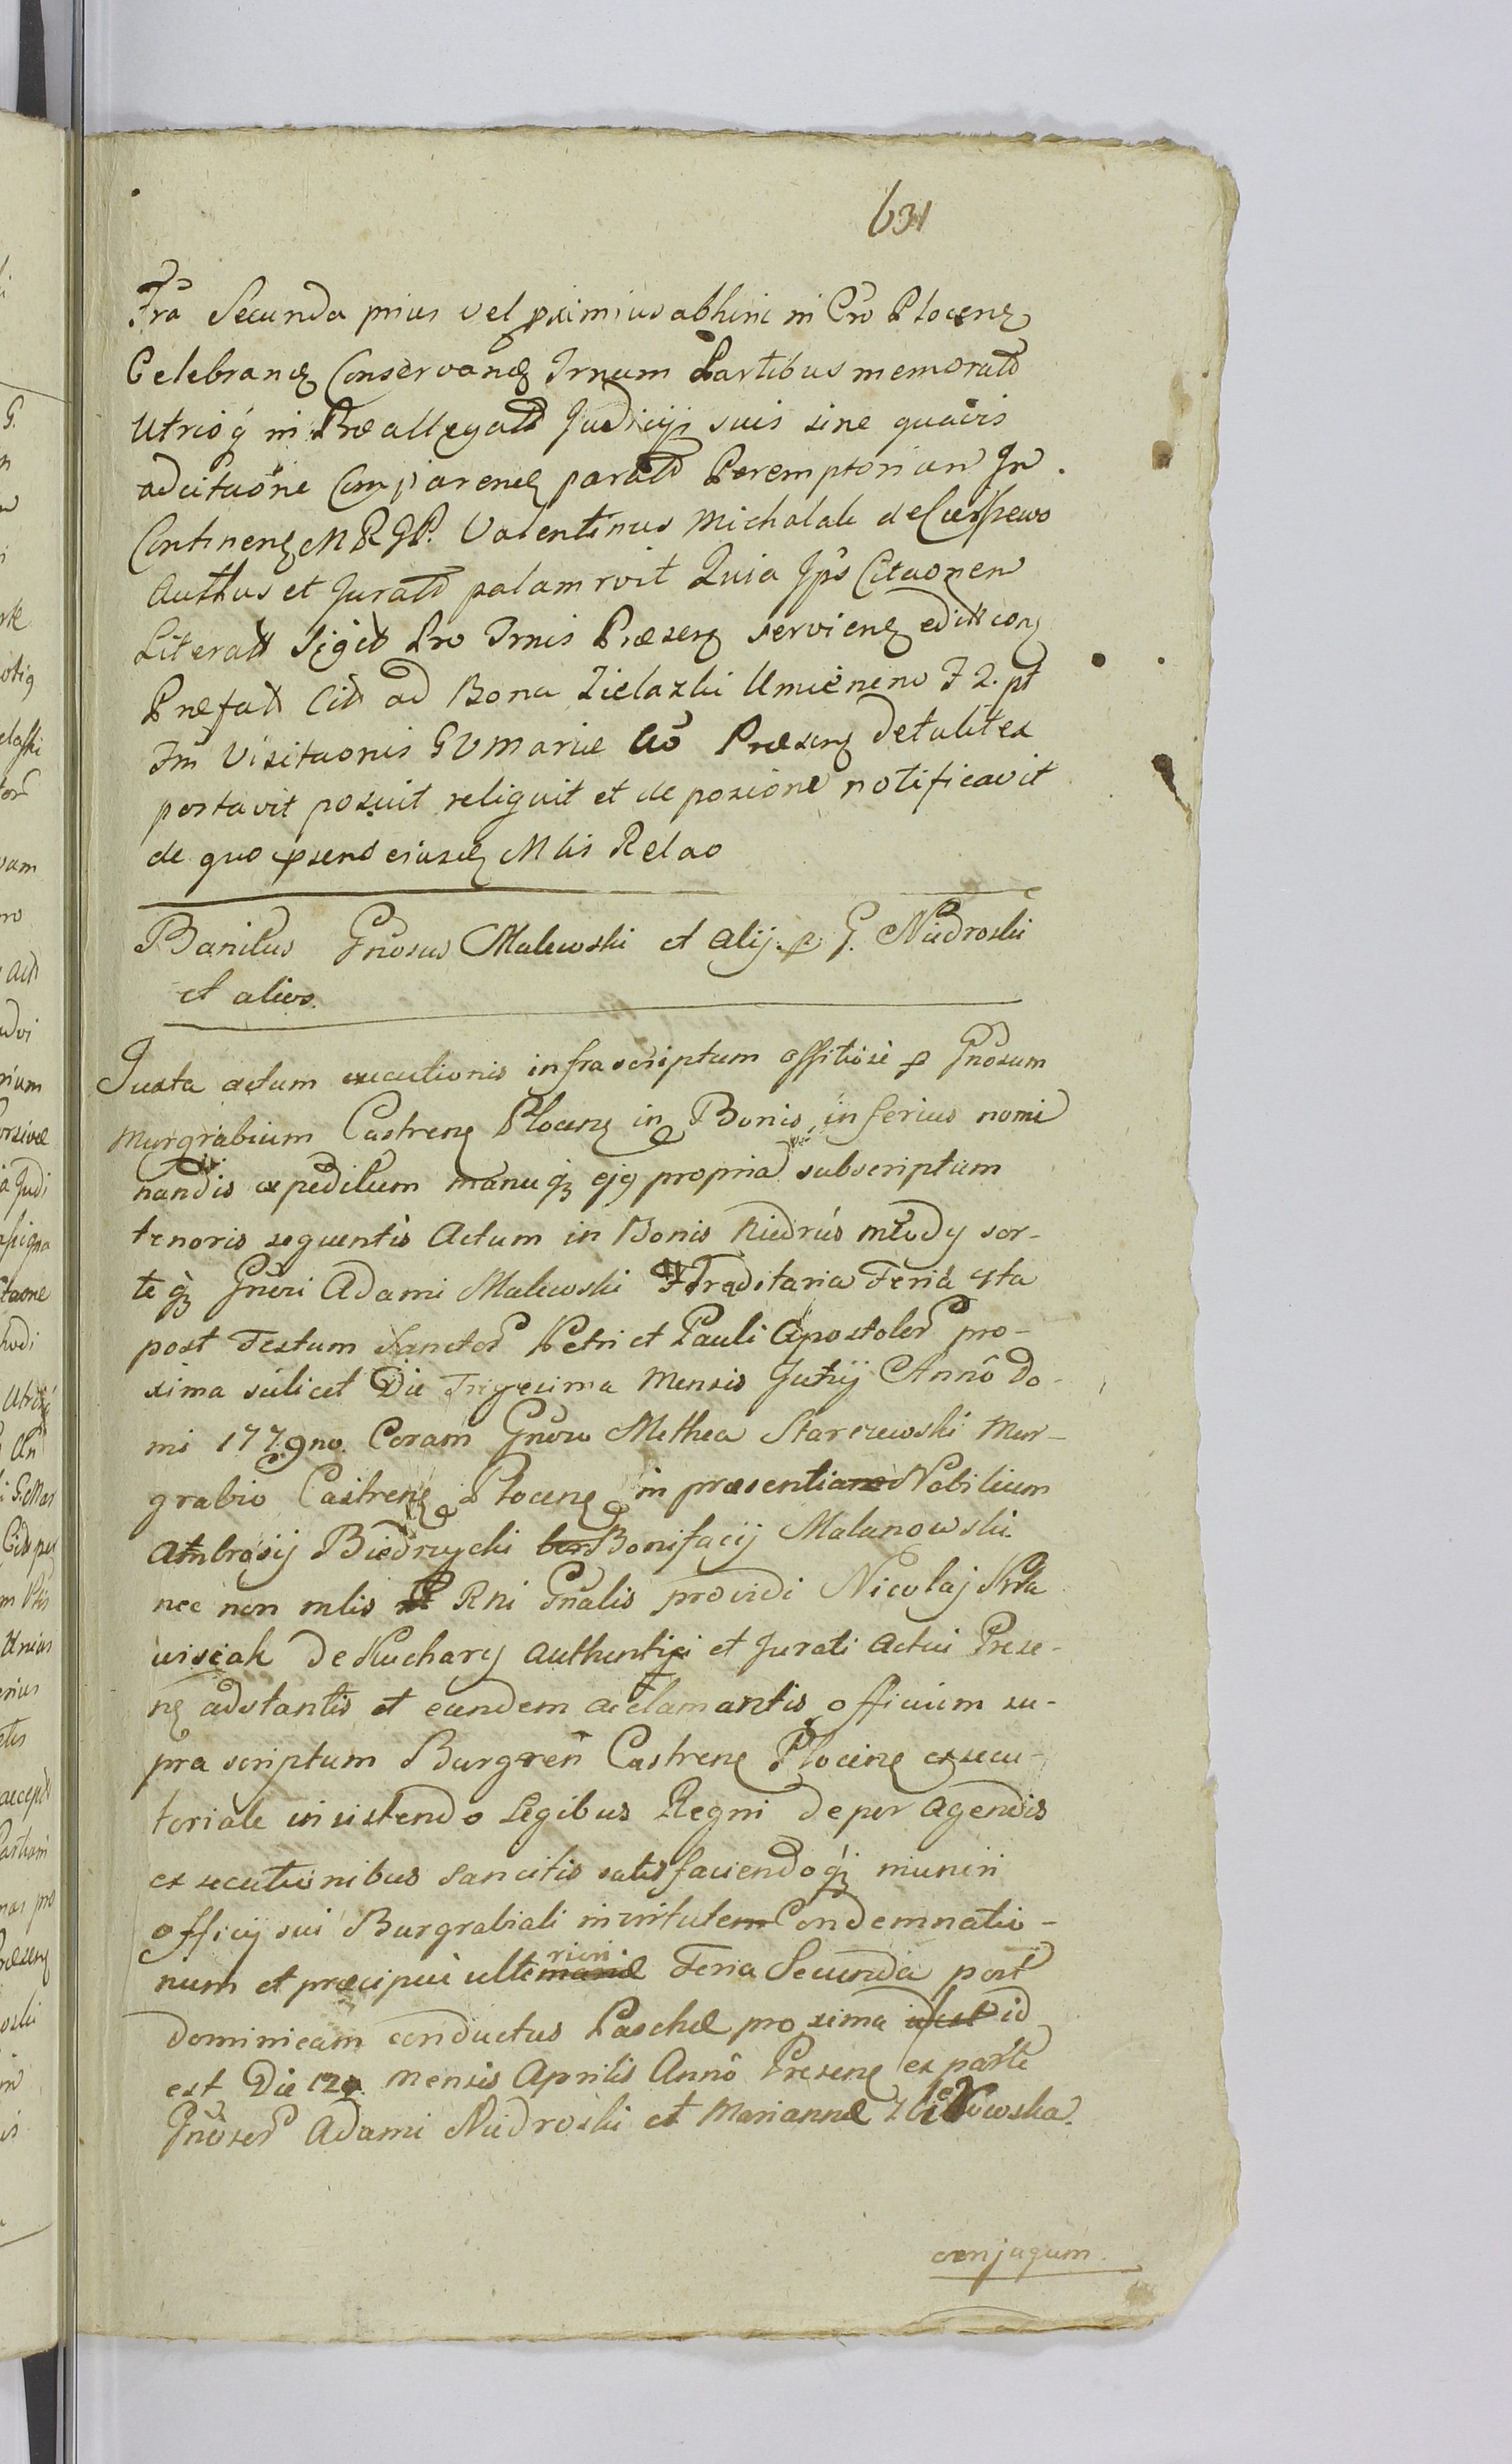 631
Fra Secunda prius vel proximius abhinc in Cro Plocenz
Celebranz Conservanz Trnum Partibus memoratt
Utriusq in Præallegatt Judicijs suis sine quavis
adcitaone Comparenz paratt Peremptorium In
Continenz M R G P. Valentinus Michalak de
Authus et Juratt palam rvit Quia Ips Citaonem
Literatt Sigitt Pro Trnis Præsenz servienz editt conz
Præfatt Citt ad Bona Zielazki Umienino F 2. pt
Fm Visitaonis G V Mariæ Ao Præsenz detulit ex
portavit posuit reliquit et de posione notificavit
de quo præsens eiusdz Mlis Relao
Banitus Gnosus Malewski et alij. p G. Niedroski
et alios.
Juxta actum executionis infrascriptum offitiose p Gnosum
Murgrabium Castrenz Plocenz in Bonis inferius nomi
nandis expeditum manuqz ejq propria subscriptum
tenoris sequentis Actum in Bonis Niedrus młody sor-
teqz Gnosi Adami Malewski Hæreditaria Feria 4ta
post Festum Sanctor Petri et Pauli Apostolor pro-
xima scilicet Die Trigesima Mensis Junij Anno Do-
mi 1779no. Coram Gnoso Mathea Starczewski Mur-
grabio Castrenz Plocenz in præsentia Nobilium
Ambrosij Biedrzycki Bonifacij Malanowski
nec non mlis Rni Gnalis providi Nicolaj
wisiak de Kuchary Authentici et Jurati Actui Prese-
nz adstantis et eundem acclamantis officium su-
pra scriptum Burgren Castrenz Plocenz execu-
toriale insistendo Legibus Regni de per agendis
executionibus sancitis satisfaciendoqz muneri
officij sui Burgrabiali in virtutem Condemnatio-
num et præcipue ulterióri Feria Secunda post
Dominicam conductus Paschæ proxima id
est Die 12. Mensis Aprilis Anno Presenz ex parte
Gnosor Adami Niedroski et Mariannæ
conjugum